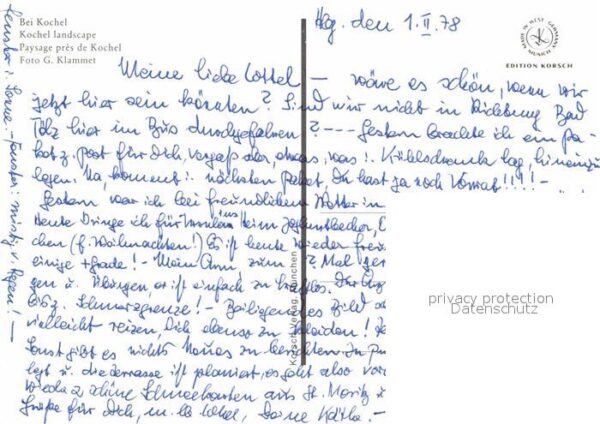 Bei Kochel
Kochel landscape
Paysage près de Kochel
Foto G. Klammet
Hbg. den 1.II.78
MADE IN WEST GERMANY
MUNICH
EDITION KORSCH
Meine liebe Lottel – wäre es schön, wenn wir
jetzt hier sein könnten? Sind wir nicht in Richtung Bad
Tölz hier im Bus durchgefahren? --- Gestern brachte ich ein Pa-
ket z. Post für Dich, vergaß aber, etwas, was i. Kühlschrank lag, hineinzu
legen. Na, kommt i. nächsten Paket, Du hast ja noch Vorrat!!!! –
Gestern war ich bei freundlichem Wetter in
Heute bringe ich für ins Heim
chen (f. Weihnachten!) Es ist heute wieder
einige + Grade! – Mein Arm, zum ? Mal
gen u. Übungen, er ist einfach zu
bis z. Schmerzgrenze! – Beiliegendes Bild
vielleicht reizen, Dich ebenso zu kleiden!
Sonst gibt es nichts Neues zu berichten. In
legt u. die Terrasse ist planiert, es geht also
2 schöne Schneekarten aus St. Moritz
Grüße für Dich, m. lb. Lottel, Deine Käthe. –
Fenster: Sonne – Fenster: mistig v. Regen! –
Korsch Verlag, München
privacy protection
Datenschutz